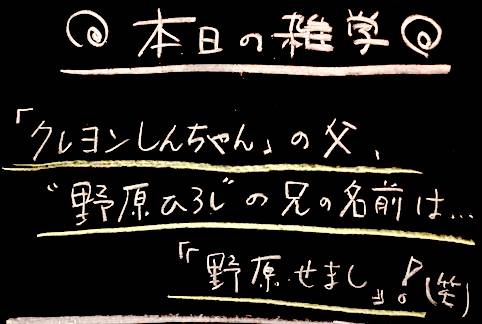 本日の雑学
「クレヨンしんちゃん」の父、
"野原ひろし"の兄の名前は...
『野原せまし』!(笑)